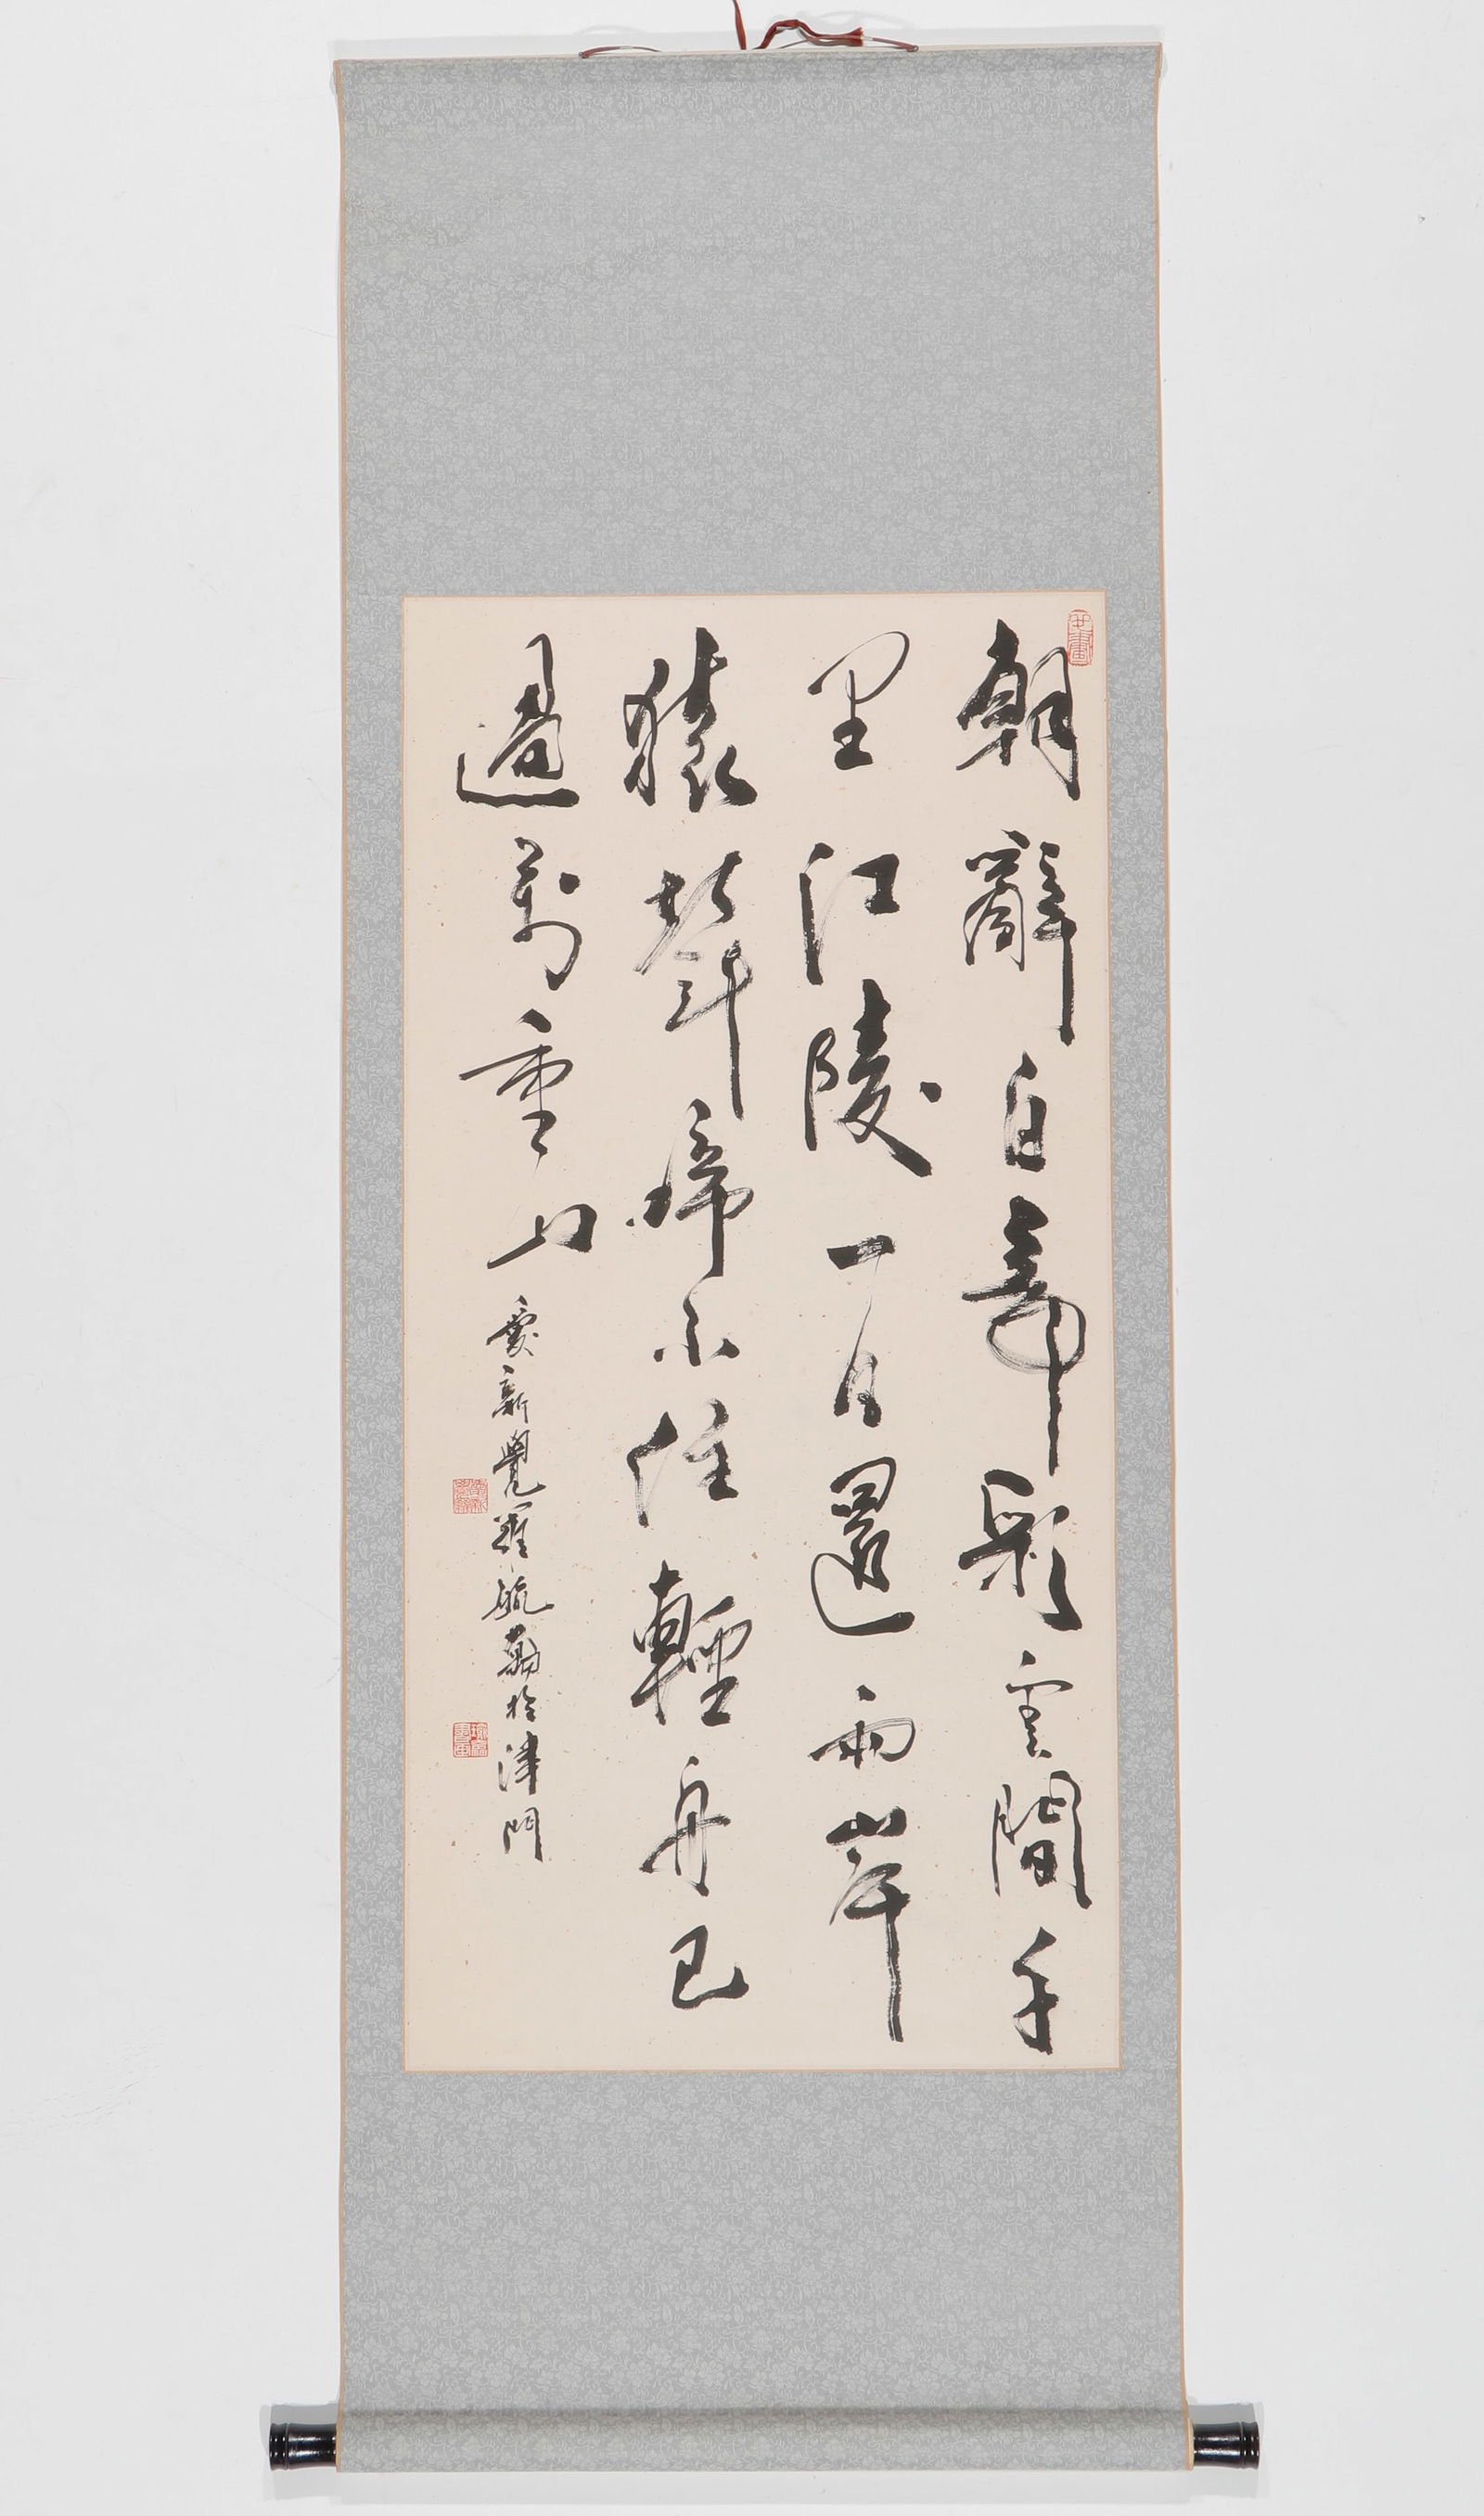 朝辭白帝彩雲間千
里江陵一日還兩岸
猿聲啼不住輕舟已
過萬重山
愛新覺羅毓 於津門